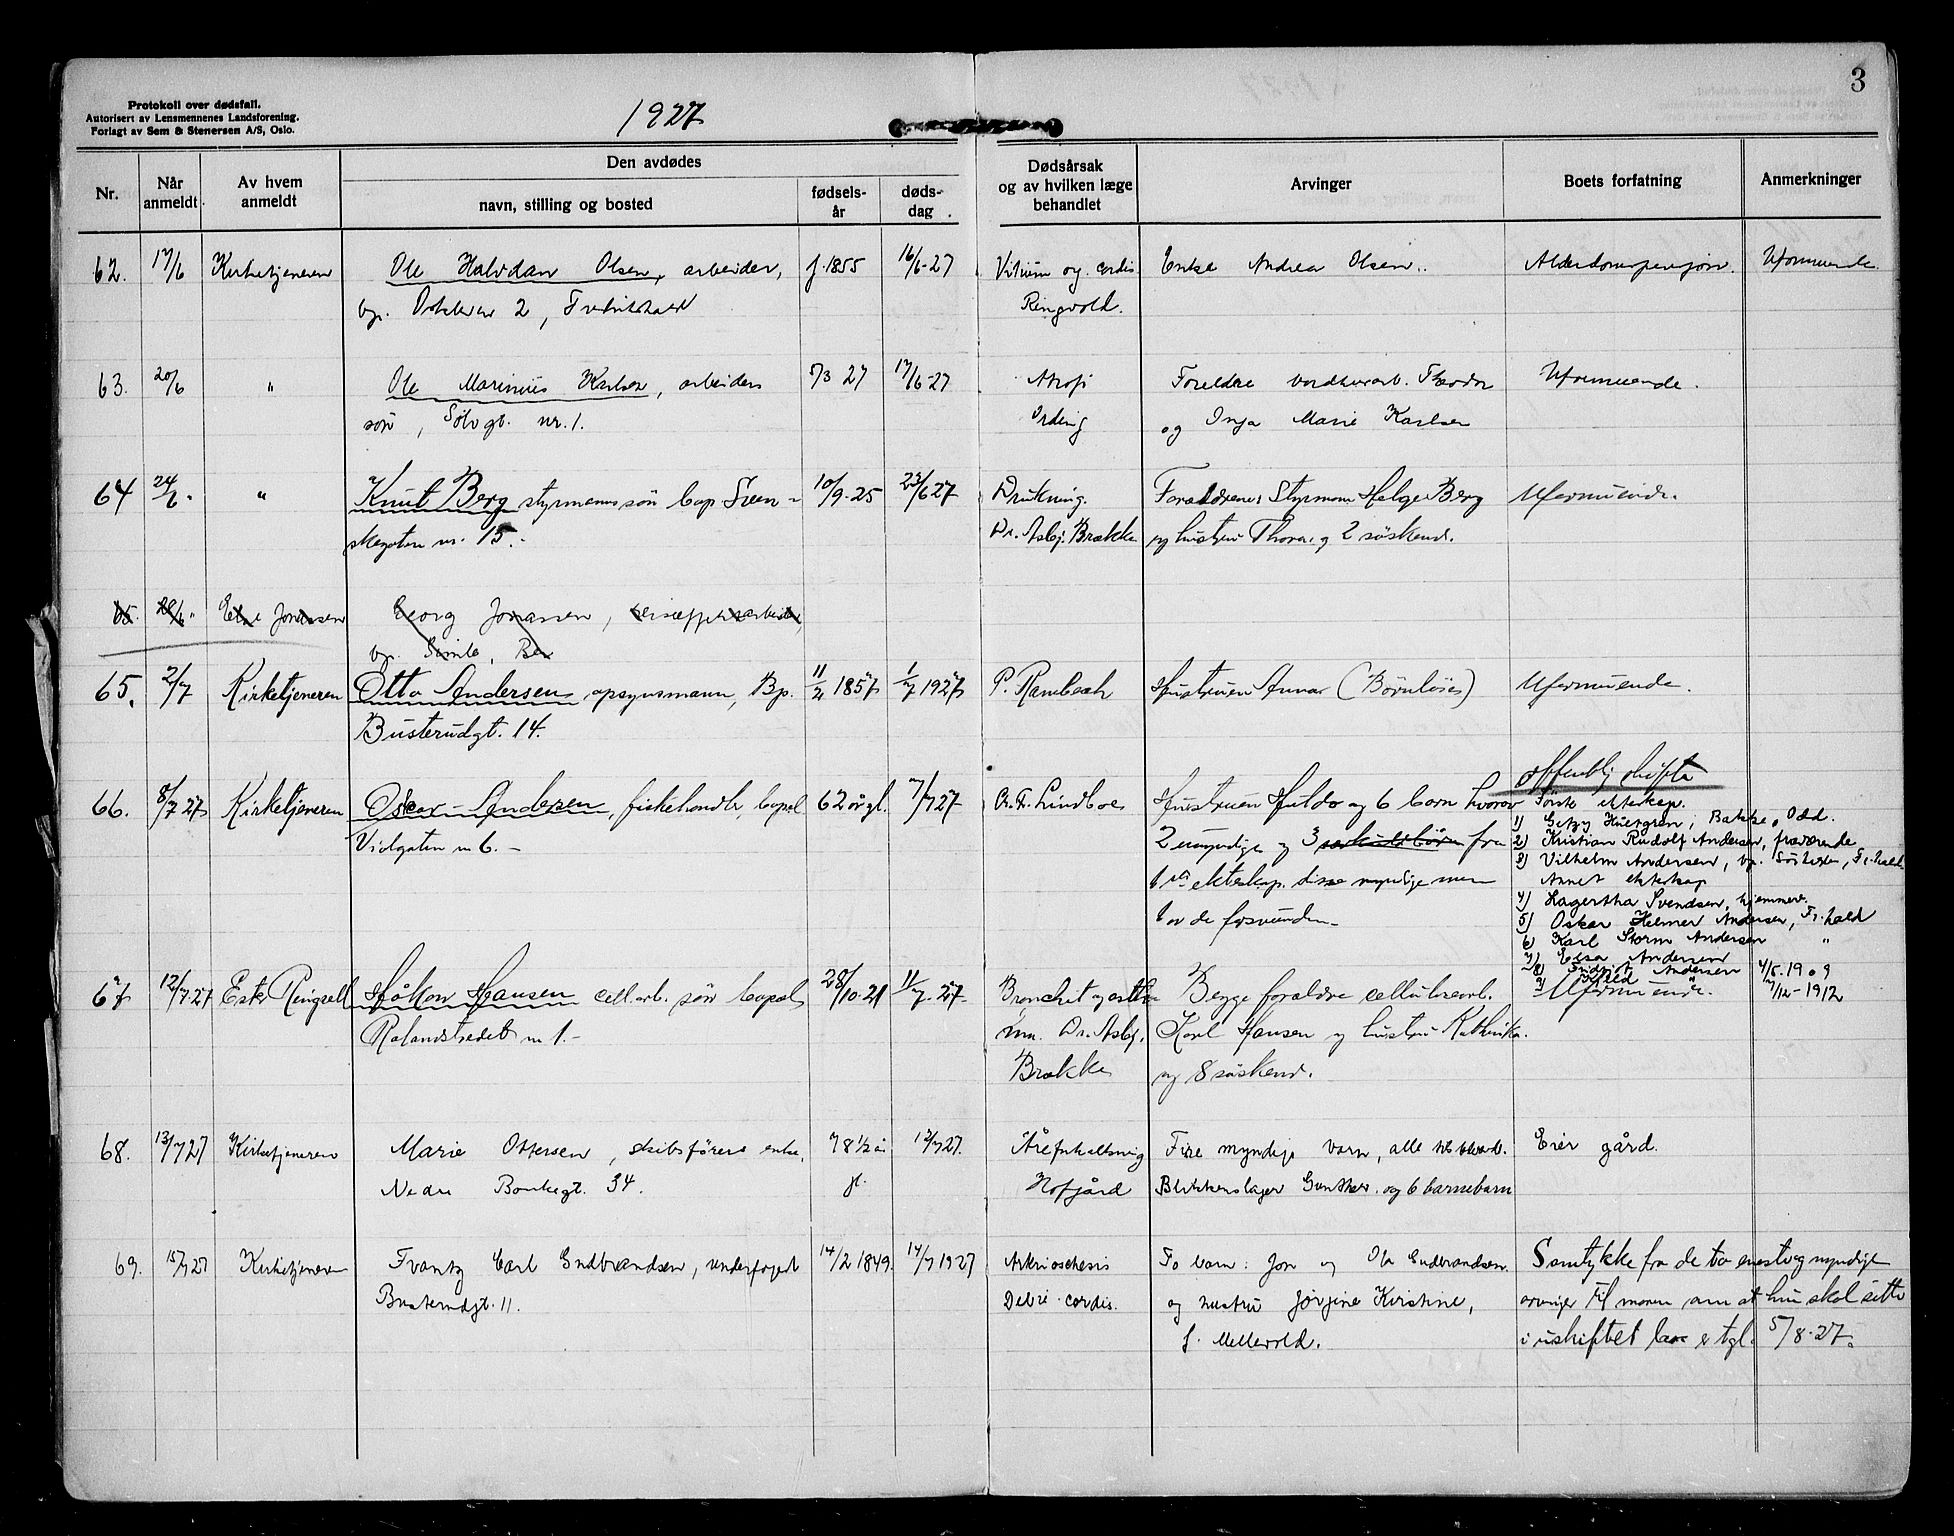 3
Protokoll over dødsfall.
Autorisert av Lensmennenes Landsforening.
Forlagt av Sem & Stenersen A/S, Oslo.
1927
Nr.
Når anmeldt
Av hvem anmeldt
Den avdødes
navn, stilling og bosted
fødsels-år
døds-dag
Dødsårsak og av hvilken læge behandlet
Arvinger
Boets forfatning
Anmerkninger
62. 17/6 Kirketjeneren Ole Halvdan Olsen, arbeider, f. 1855 16/6-27 Vitium og cordis Enke Andrea Olsen. Alderdomspensjon. Uformuende.
bp. 2, Fredrikshald Ringvold.
63. 20/6 " Ole Marinius Karlsen, arbeiders 5/3 27 17/6-27 Atrofi Foreldre Theodor Uformuende.
søn, Sølvgt. nr. 1. Ording og Inga Marie Karlsen
64 24/6. " Knut Berg styrmanns søn bop Sven- 10/9-25 23/6 27 Drukning. Forældrene Styrmann Helge Berg Uformuende.
skegaten nr. 15.- Dr. Asbj. Brække og hustru Thora og 2 søskend.
65. 28/6. Else Jonassen Georg Jonassen,
bp.
65. 2/7 Kirketjeneren Otto Andersen opsynsmann, Bp. 11/2 1857 1/7 1927 P. Rambech Hustruen Anna (Børnløse) Uformuende.
Busterudgt. 14.
66. 8/7 27 Kirketjeneren Oskar Andersen, fiskehandler, bopæl 62 år gl. 7/7 27 Lindboe Hustruen Hulda og 6 barn hvorav
Vidgaten nr 6.- 2 umyndige og 3 særkuldbørn fra
1ste ekteskap. disse myndige men
1 av de forsvunden-
offentlig skifte
Første ekteskap.
1) Hultgren, Bakke, Odd.
2) Kristian Rudolf Andersen, fraværende
3) Vilhelm Andersen, bp. Fr.hald
Annet ekteskap
4) Lagertha Svendsen, hjemmev.
5) Oskar Helmer Andersen, Fr.hald
6) Karl Storm Andersen "
7) Elsa Andersen
8) Andersen 4/5.1909
9) " 7/12-1912
67 12/7.27 Håkon Hansen cell.arb. søn bopæl 28/10.21 11/7.27 Bronchit og Begge forældre cellulosearb. Uformuende.
nr 1.- Dr. Asbj. Karl Hansen og hustru Kathinka
Brække og 8 søskend.
68. 13/7 27 Kirketjeneren Marie Ottersen, skibsførers enke, 78 1/2 år 12/7 27. Åreforkalkning Fire myndige barn, alle Eier gård.
Nedre Bankegt. 34. gl. Hofgård Blikkenslager Gunther og 6 barnebarn
69. 15/7 27 Kirketjeneren Frantz Carl Gudbrandsen, underfoged 14/2 1849. 14/7 1927 To barn: Jon og Ole Gudbrandsen Samtykke fra de to eneste og myndige
Busterudgt. 11. cordis. og hustru Jørgine Kirstine, arvinger til moren om at hun skal sitte
f. Mellevold. i uskiftet bo er tgl. 5/8-27.